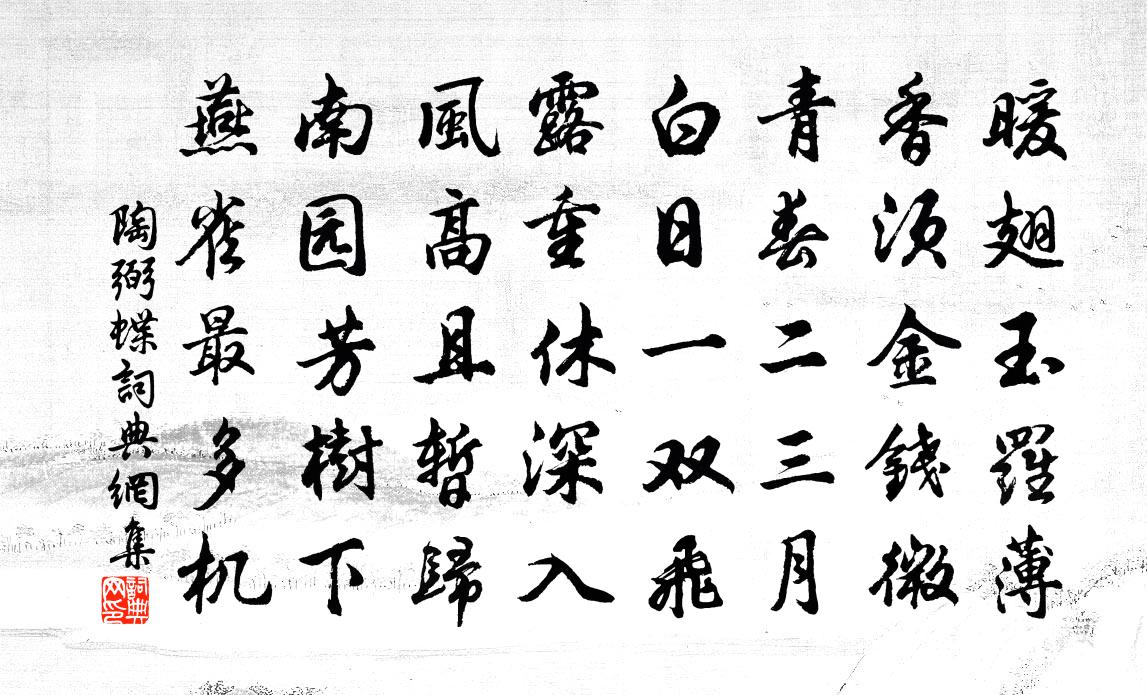 暖翅玉羅薄
香须金錢微
青春二三月
白日一双飛
露重休深入
風高且暫歸
南园芳樹下
燕雀最多机
陶弼蝶詞典網集
詞典网印